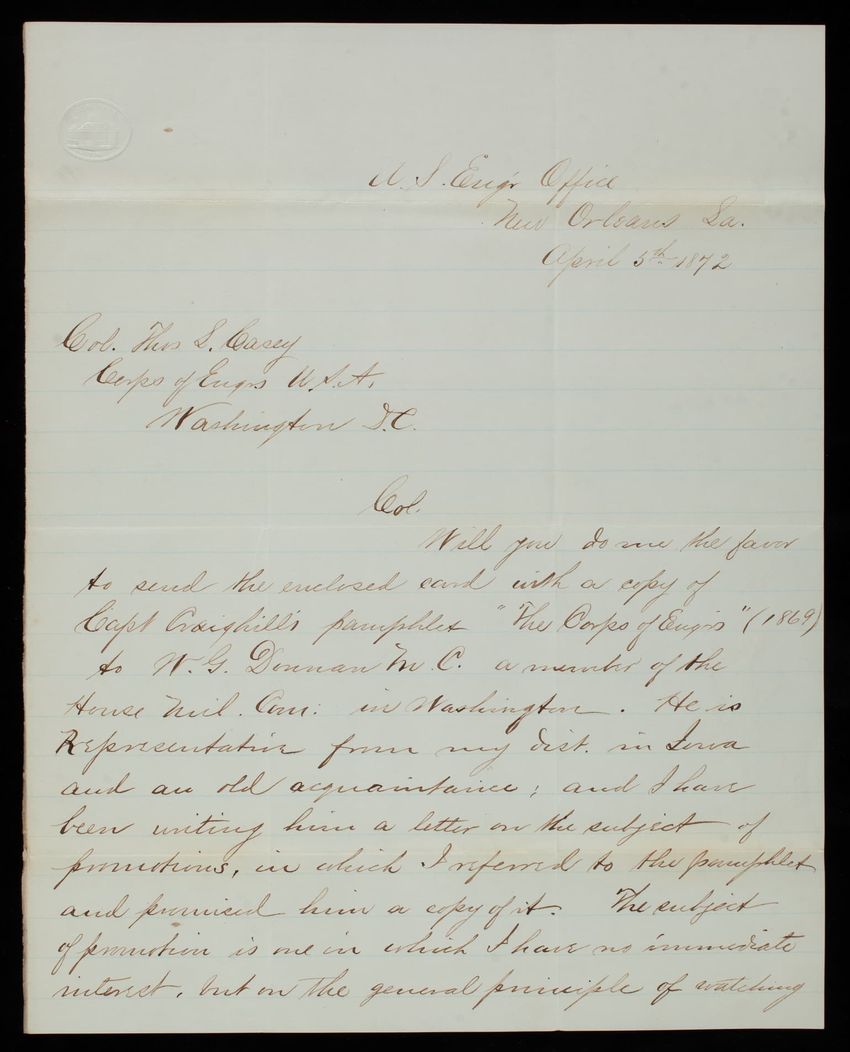 U. S. Engr Office
New Orleans La.
April 5th 1872
Col. Thos L. Casey
Corps of Engrs U.S.A.
Washington D.C.
Col.
Will you do me the favor
to send the enclosed card with a copy of
Capt Craighill's pamphlet "The Corps of Engrs" (1869)
to W. G. Donnan M. C. a member of the
House Mil. Com. in Washington. He is
Representative from my dist. in Iowa
and an old acquaintance; and I have
been writing him a letter on the subject of
promotions, in which I referred to the pamphlet
and promised him a copy of it. The subject
of promotion is one in which I have no immediate
interest, but on the general principle of watching